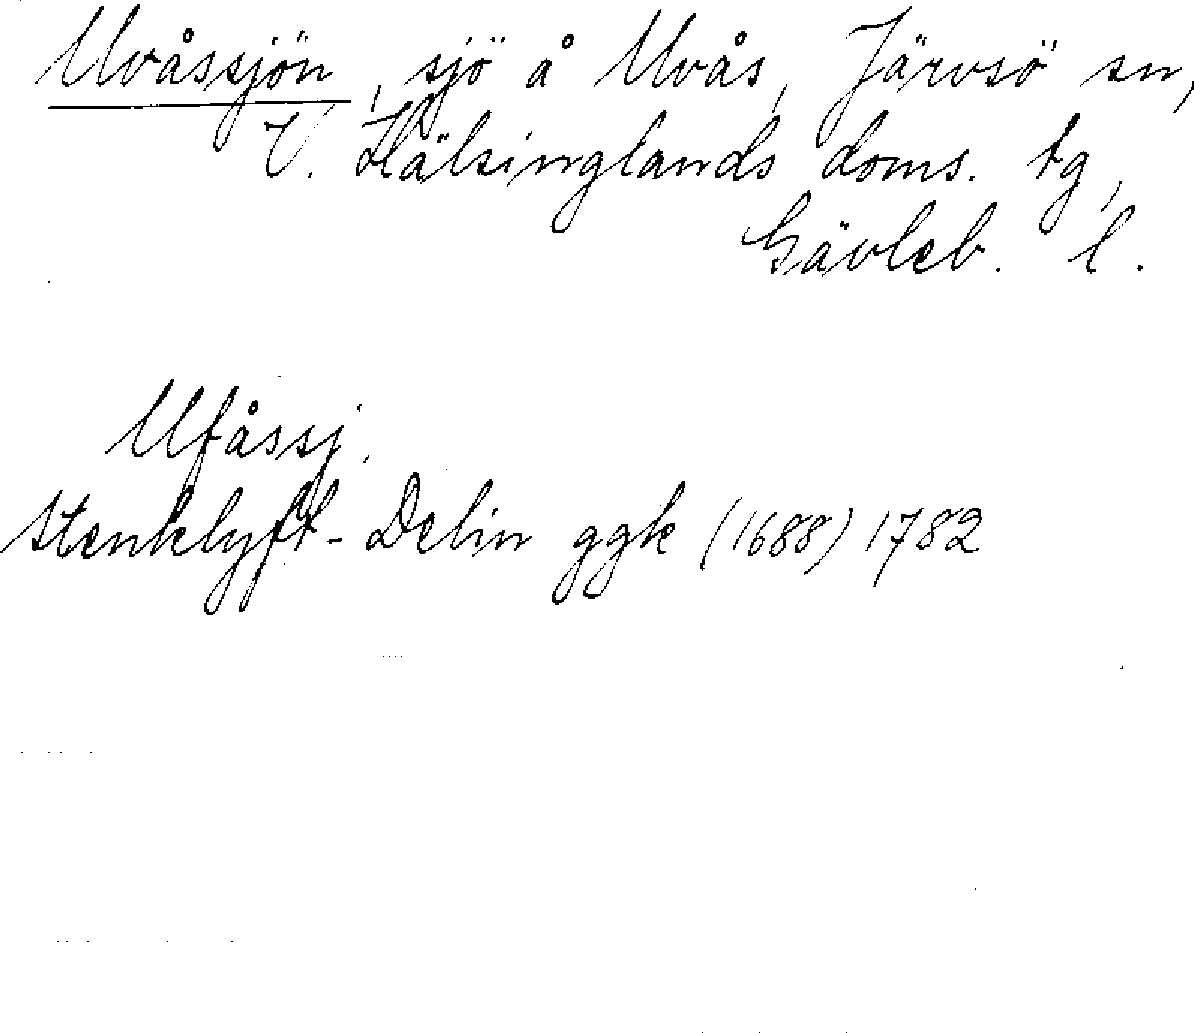 Uvåssjön, sjö å Uvås, Järvsö sn,
V. Hälsinglands doms. tg,
Gävleb. l.
Ufåssj.
Stenklyft- Delin ggk (1688) 1782